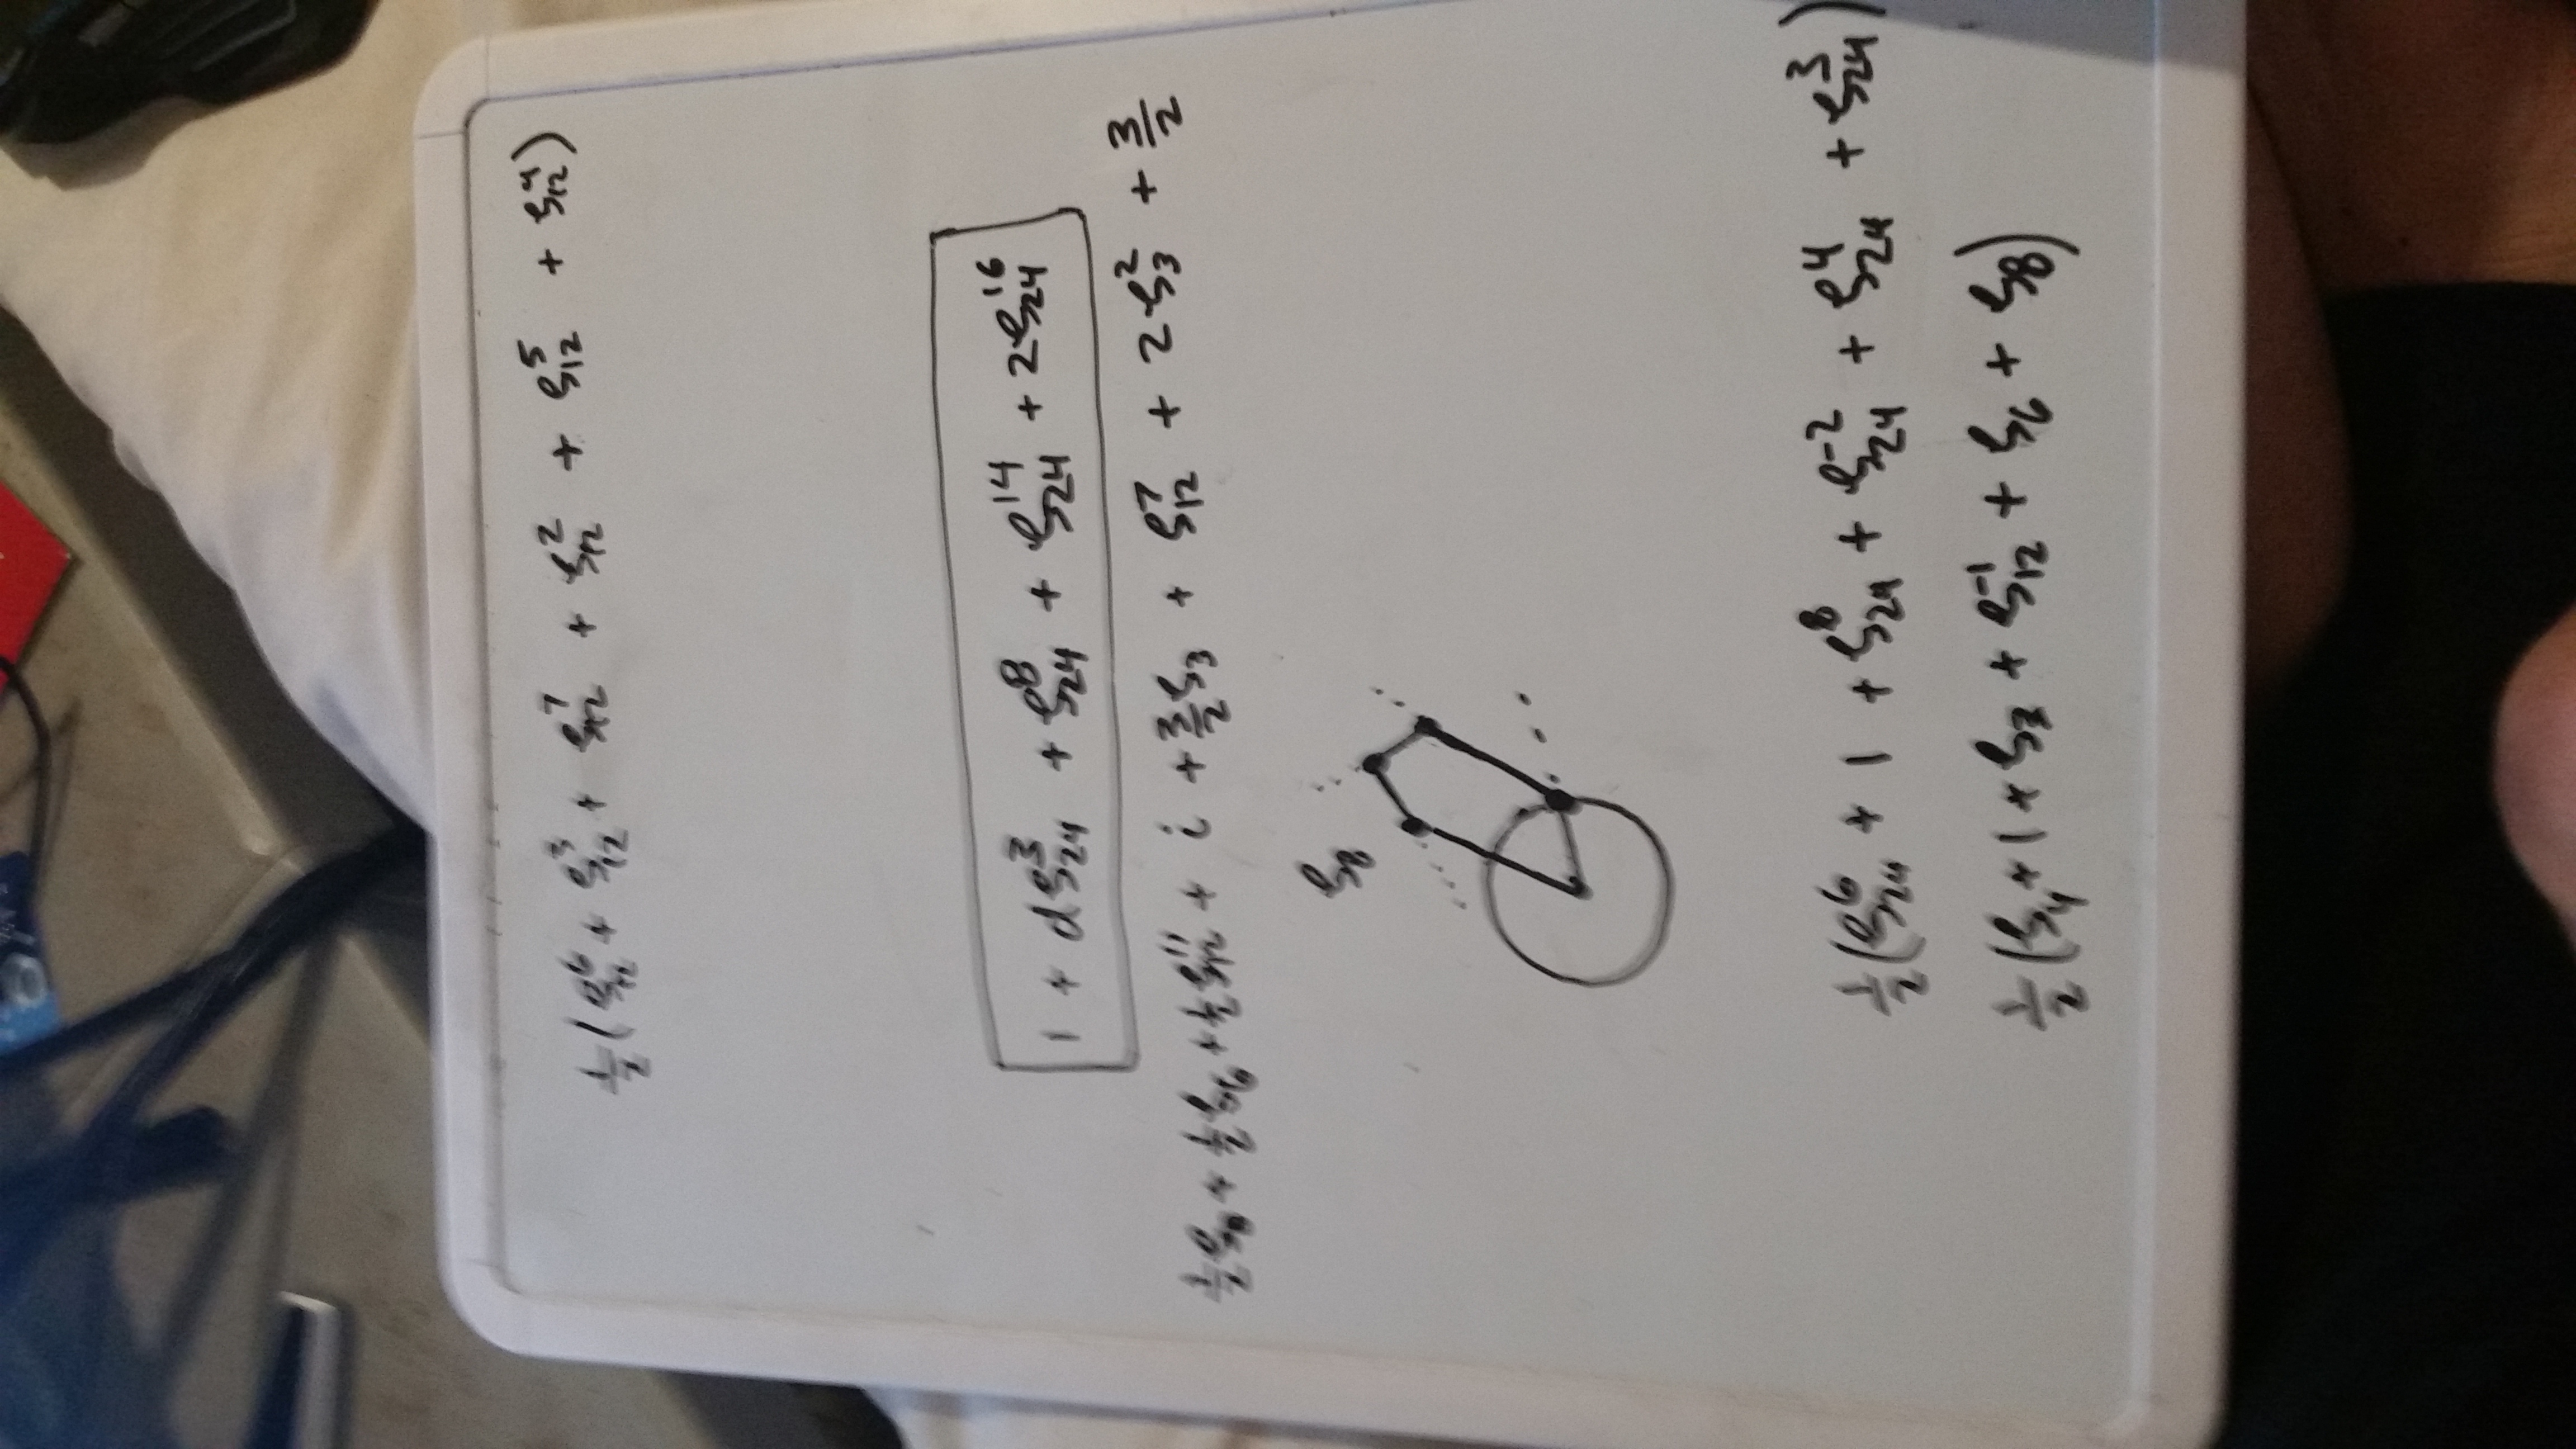 ½(ζ₁₂⁶ + ζ₁₂³ + ζ₁₂⁷ + ζ₁₂² + ζ₁₂⁵ + ζ₁₂⁴)
1 + dζ₂₄³ + ζ₂₄⁸ + ζ₂₄¹⁴ + 2ζ₂₄¹⁶
½ζ₈ + ½ζ₆ + ½ζ₁₂¹¹ + i + 3/2 ζ₃ + ζ₁₂⁷ + 2ζ₃² + 3/2
ζ₈
½(ζ₂₄⁶ + 1 + ζ₂₄⁸ + ζ₂₄⁻² + ζ₂₄⁴ + ζ₂₄³)
½(ζ₄ + 1 + ζ₃ + ζ₁₂⁻¹ + ζ₆ + ζ₈)